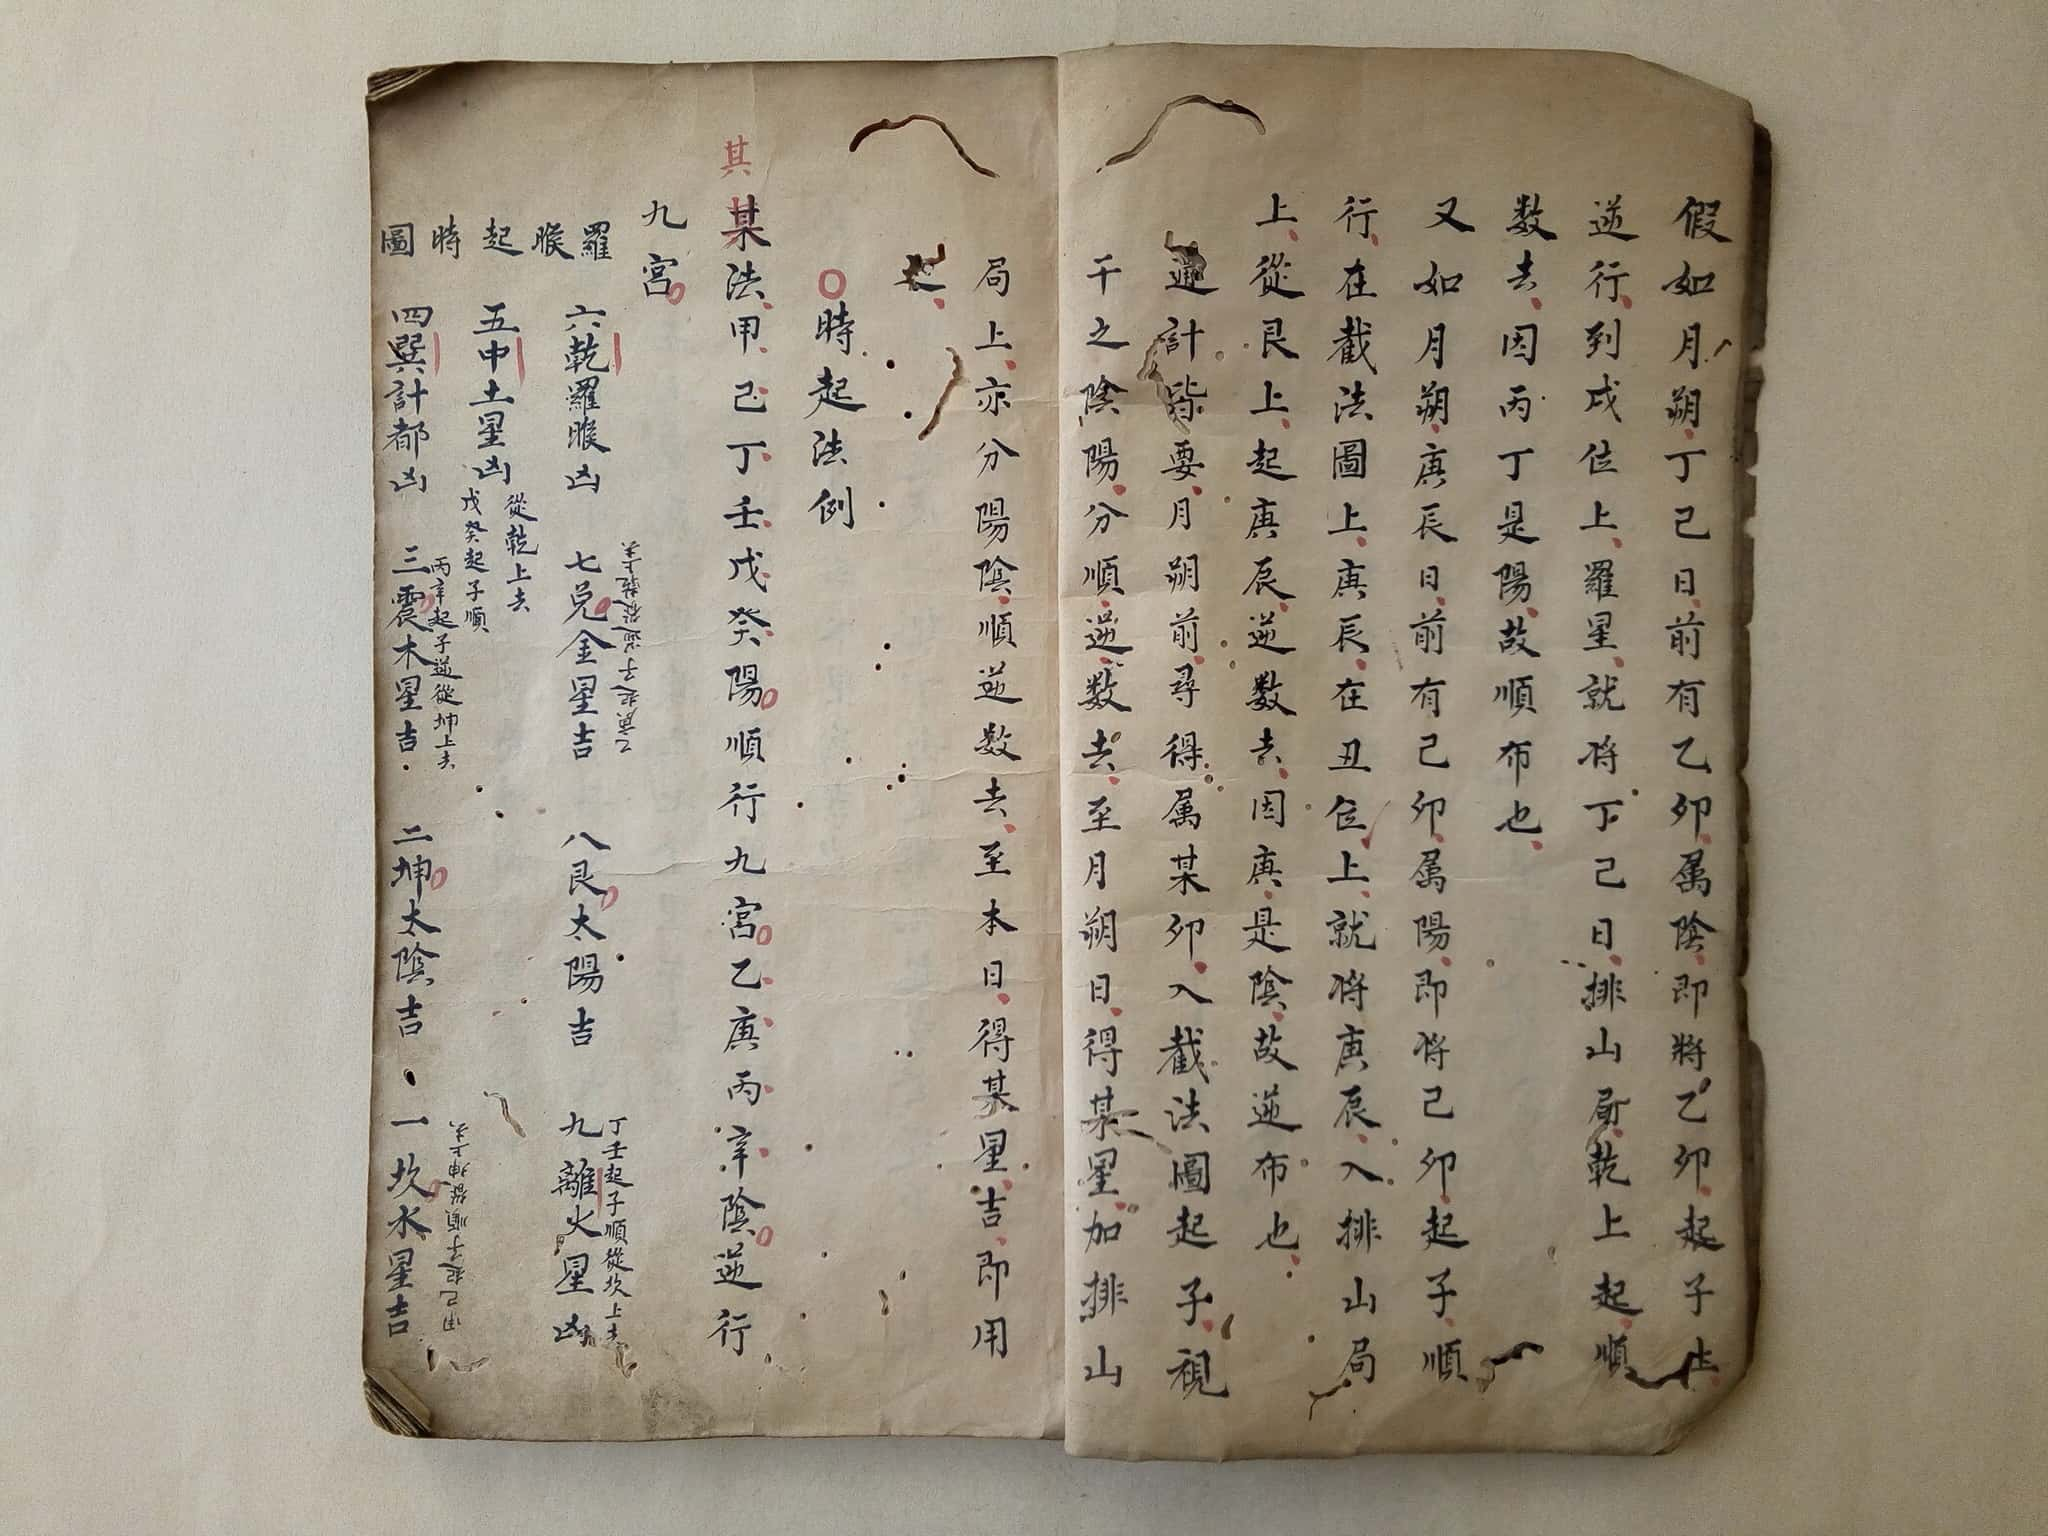 假如月朔丁己日前有乙卯属陰即將乙卯起子上
逆行到戌位上羅星就将丁己日排山局乾上起順
数去因丙丁是陽故順布也
又如月朔庚辰日前有己卯属陽即将己卯起子順
行在截法圖上庚辰在丑位上就将庚辰入排山局
上從艮上起庚辰逆数去因庚是陰故逆布也
逥計皆要月朔前尋得属某卯入截法圖起子視
干之陰陽分順逆数去至月朔日得某星加排山
局上亦分陽陰順逆数去至本日得某星吉即用
之
時起法例
其
某法甲己丁壬戊癸陽順行九宮乙庚丙辛陰逆行
九宮
羅睺起時圖
六乾羅睺凶
七兌金星吉
乙庚起子逆從乾上去
八艮太陽吉
九離火星凶
丁壬起子順從坎上去
五中土星凶
戊癸起子順
從乾上去
四巽計都凶
三震木星吉
丙辛起子逆從坤上去
二坤太陰吉
一坎水星吉
甲己起子順從坤上去